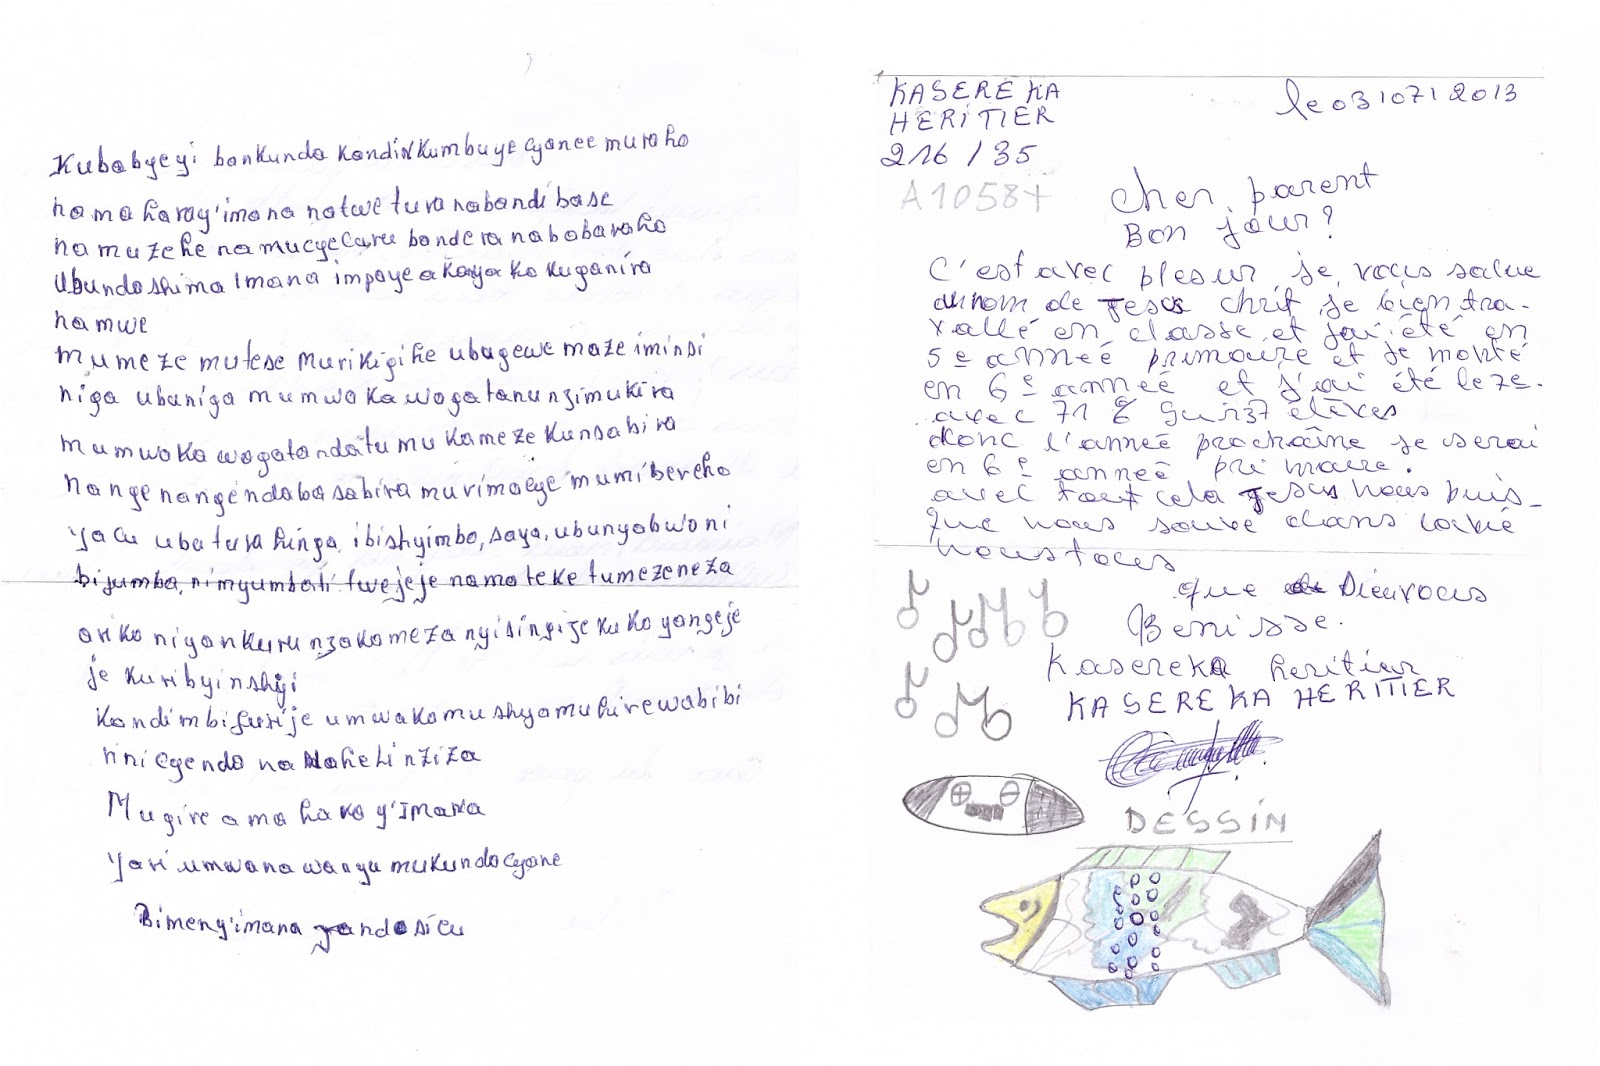 Kubabyeyi bankunda kandiNkumbuye cyanee muraho
namaharay'imana natwe turanabandi base
namuzehe na mucyecuru bandera nababaraho
Ubundoshima Imana impaye akanya ko kuganira
namwe
mumeze mutese murikigihe ubagewe maze iminsi
niga ubaniga mumwaka wagatanunzimukira
mumwaka wagatandatu mu kameze kunsabira
nange nangendabasabira murimaeye mumibereho
yacu ubaturahinga, ibishyimbo, saya, ubunyabwoni
bijumba, nimyumbati twejeje namateke tumezeneza
ariko niyankurunzakomeza nyisingizekukoyangeje
je kuribyinshyi
kandimbifurije umwakamushyamuhirewabibi
niniegendo na Noheli nziza
Mugire amahoro y'Imana
Yari umwana wanyu mukundacyane
Bimeny'imana yandosieu
KASEREKA
HERITIER
216 / 35
A1058+
le 03/07/2013
cher parent
Bon jour?
C'est avec plesur je vous salue
aunom de Jesus chrit je bien tra-
vallé en classe et j'ai été en
5e anneé primaire et je monté
en 6e anneé et j'ai été le 7e.
avec 71 % sur 37 elèves
donc l'anneé prochaine je serai
en 6e anneé primaire.
avec tout cela Jesus nous puis-
que nous souve dans lavie
noustous
que Dieuvous
Benisse.
Kasereka heritier
KASEREKA HERITIER
DESSIN